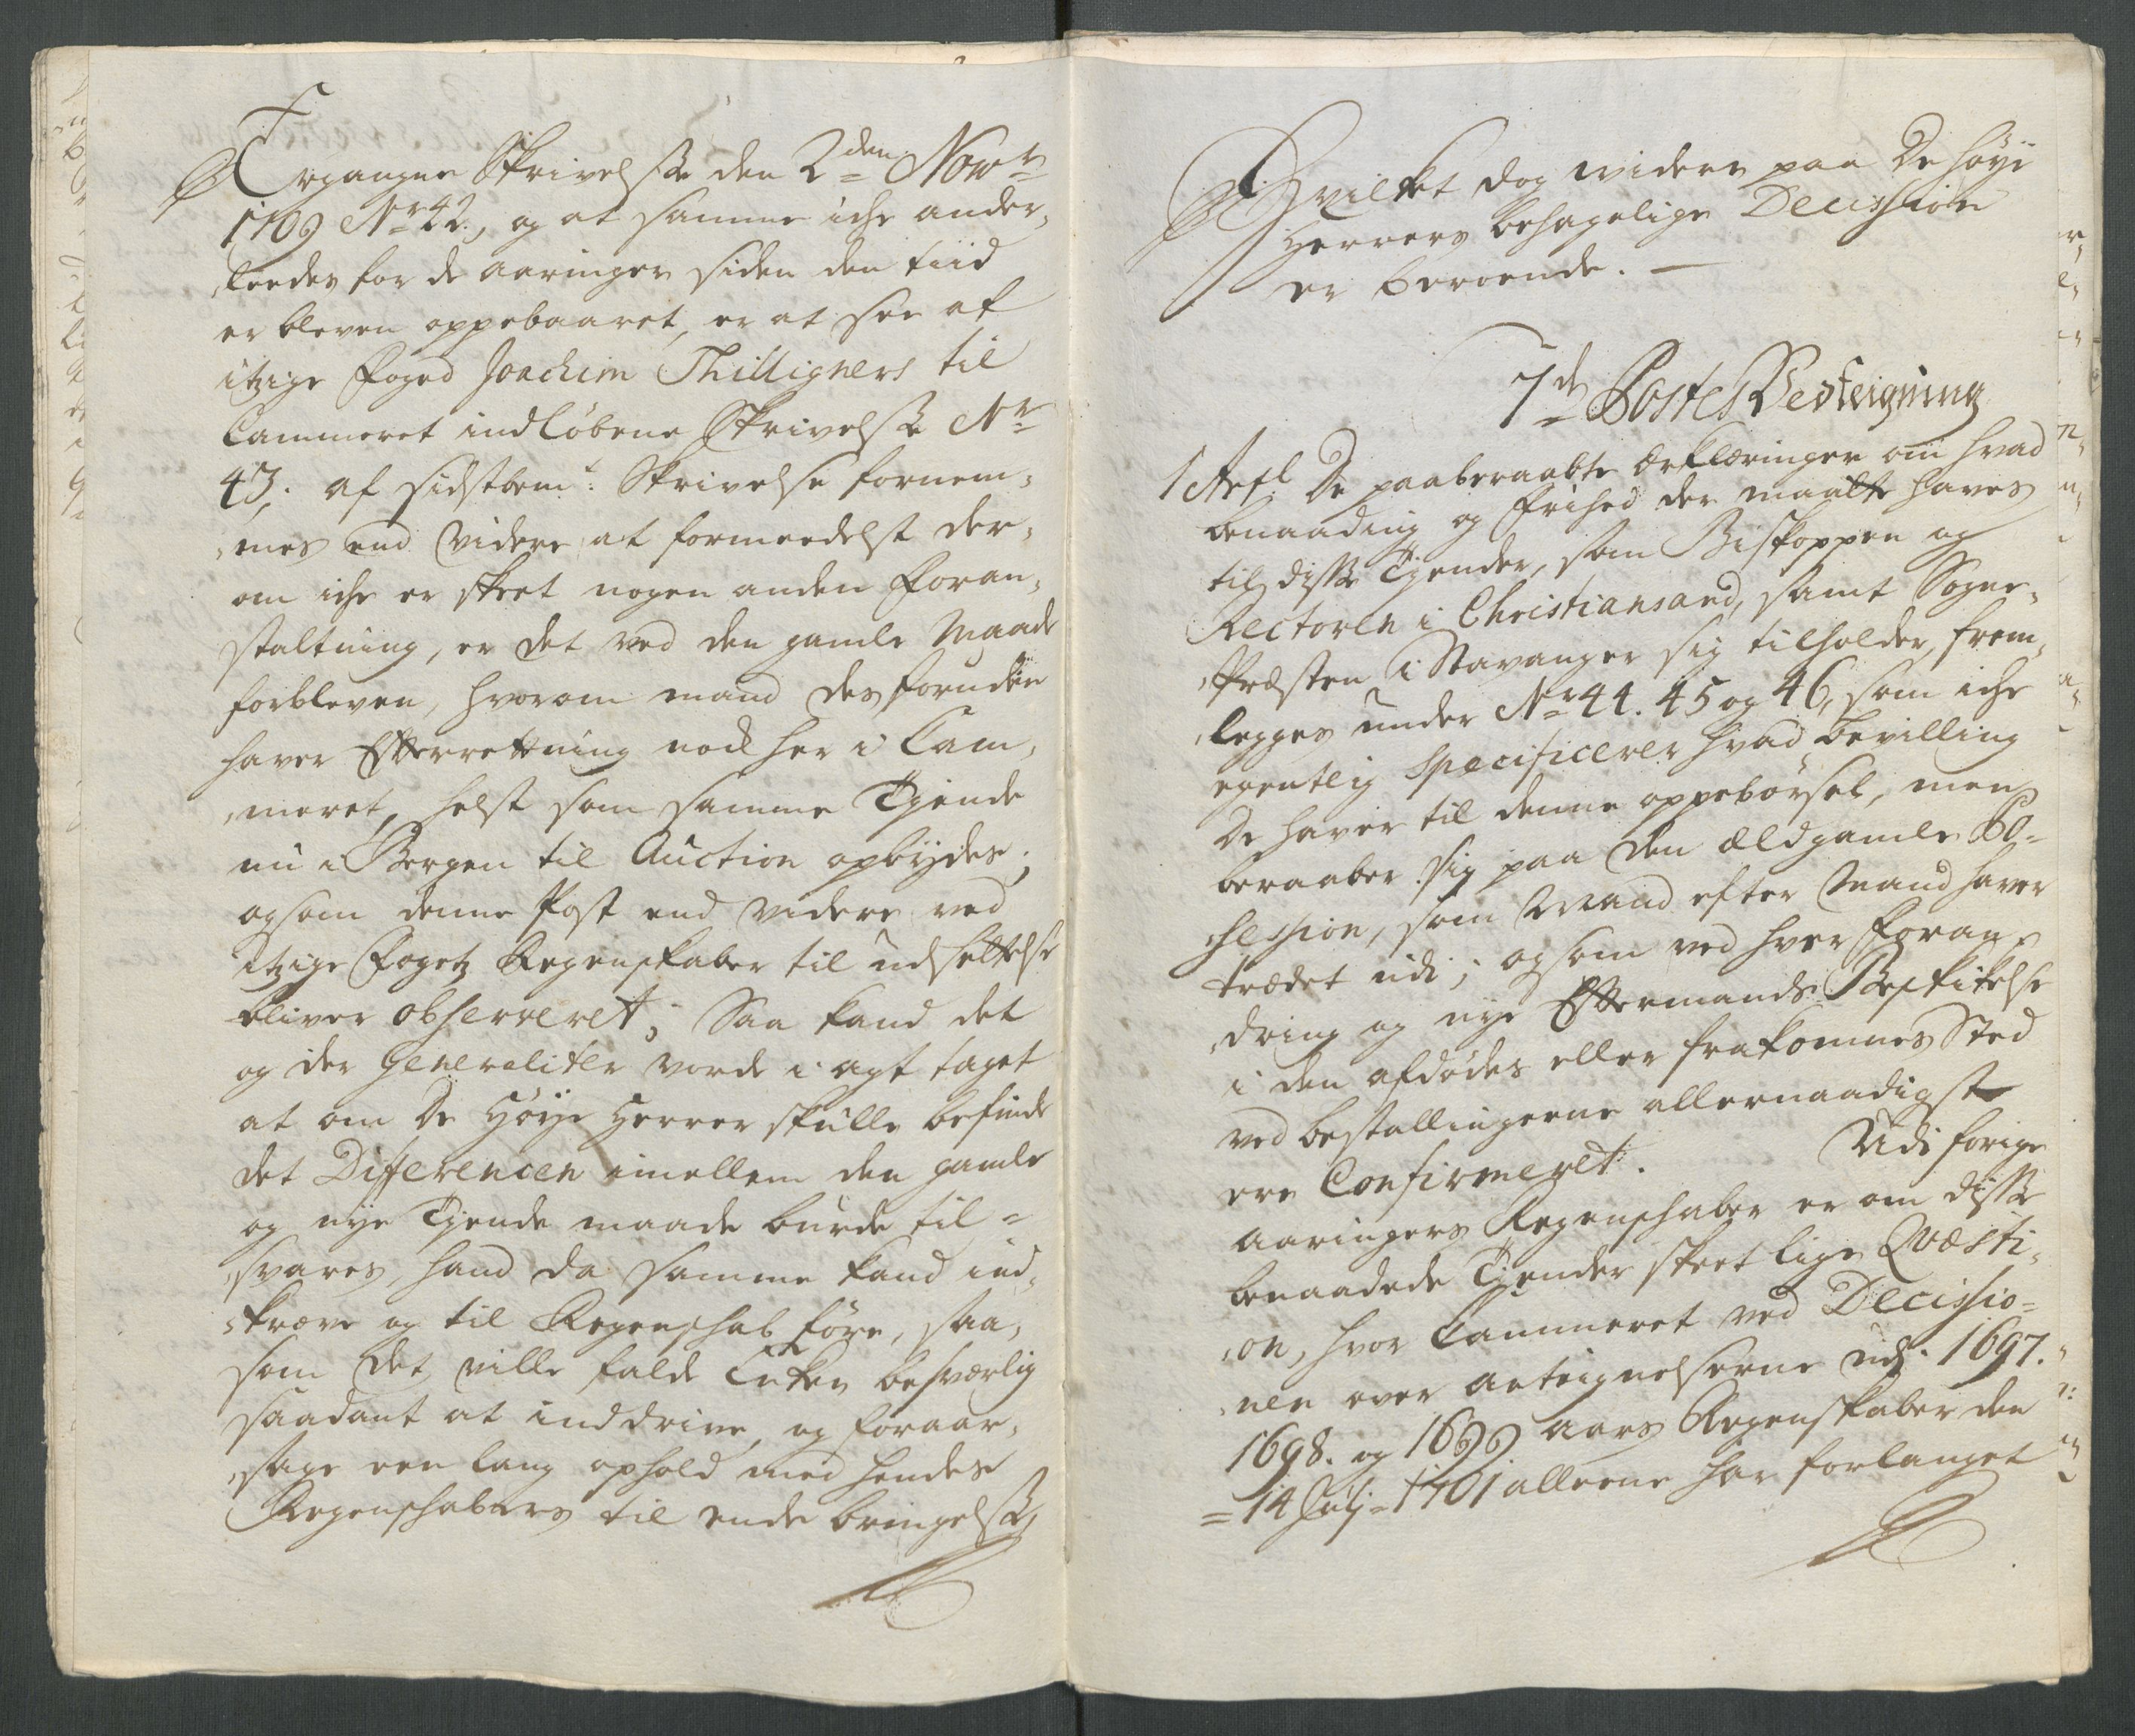 Ergangne Skrivelse den 2den Nowr
1709 Nr 42., og at samme iche ander,
,leedes for de aaringer siden den tiid
er bleven oppebaaret, er at see af
itzige foged Joachim Thilligners til
Cammeret indløbene Skrivelse Nr
43. af sidstbemt: Skrivelse fornem,
,mes end videre at formeedelst der,
om iche er skeet nogen anden foran,
staltning, er det ved den gamle Maade
forbleven, hvorom mand desforuden
haver Efterrettning nock her i Cam,
,meret, helst som samme Tjende
nu i Bergen til Auction opbydes;
og som denne Post end videre ved
itzige fogetz Regenskaber til udsettelse
bliver observeret; Saa kand det
og der generaliter vorde i agt taget
at om De Høye Herrer skulle befinde
det Differencen imellem den gamle
og nye Tjende maade burde til=
,svares, hand da samme kand ind,
,kræve og til Regenschab føre, saa,
som det ville falde Enken besværlig
saadant at inddrive, og foraar,
,sage een lang ophold med hendes
Regenschabers til ende bringelse,
Hvilket dog widere paa De høye
Herrers behagelige Decission
er beroende. —
7de Postes Besteigning
1 Art De paaberaabte Erklæringer om hvad
benaading og frihed der maatte haves
til disse Tjender, som Biskoppen og
Rectoren i Christiansand, samt Sogne,
,Præsten i Stavanger sig tilholder, frem,
,legges under Nr 44. 45 og 46, som iche
egentlig specificerer hvad bevilling
De haver til denne oppebørsel, men
beraaber sig paa den ældgamle Po=
,ssession, som Mand efter Mand haver
traadet udi; og som ved hver foran,
,dring og nye Eftermands Beskikelse
i den afdødes eller frakommes Sted
ved bestallingerne allernaadigst
ere Confirmeret. Udi forige
aaringers Regenschaber er om disse
benaadede Tjender skeet lige Qvæsti,
,on, hvor Cammeret ved Decissio=
,nen over antegnelserne udj 1697.
1698. og 1699 aars Regenskaber den
=14 Julj= 1701 alleene har forlanget